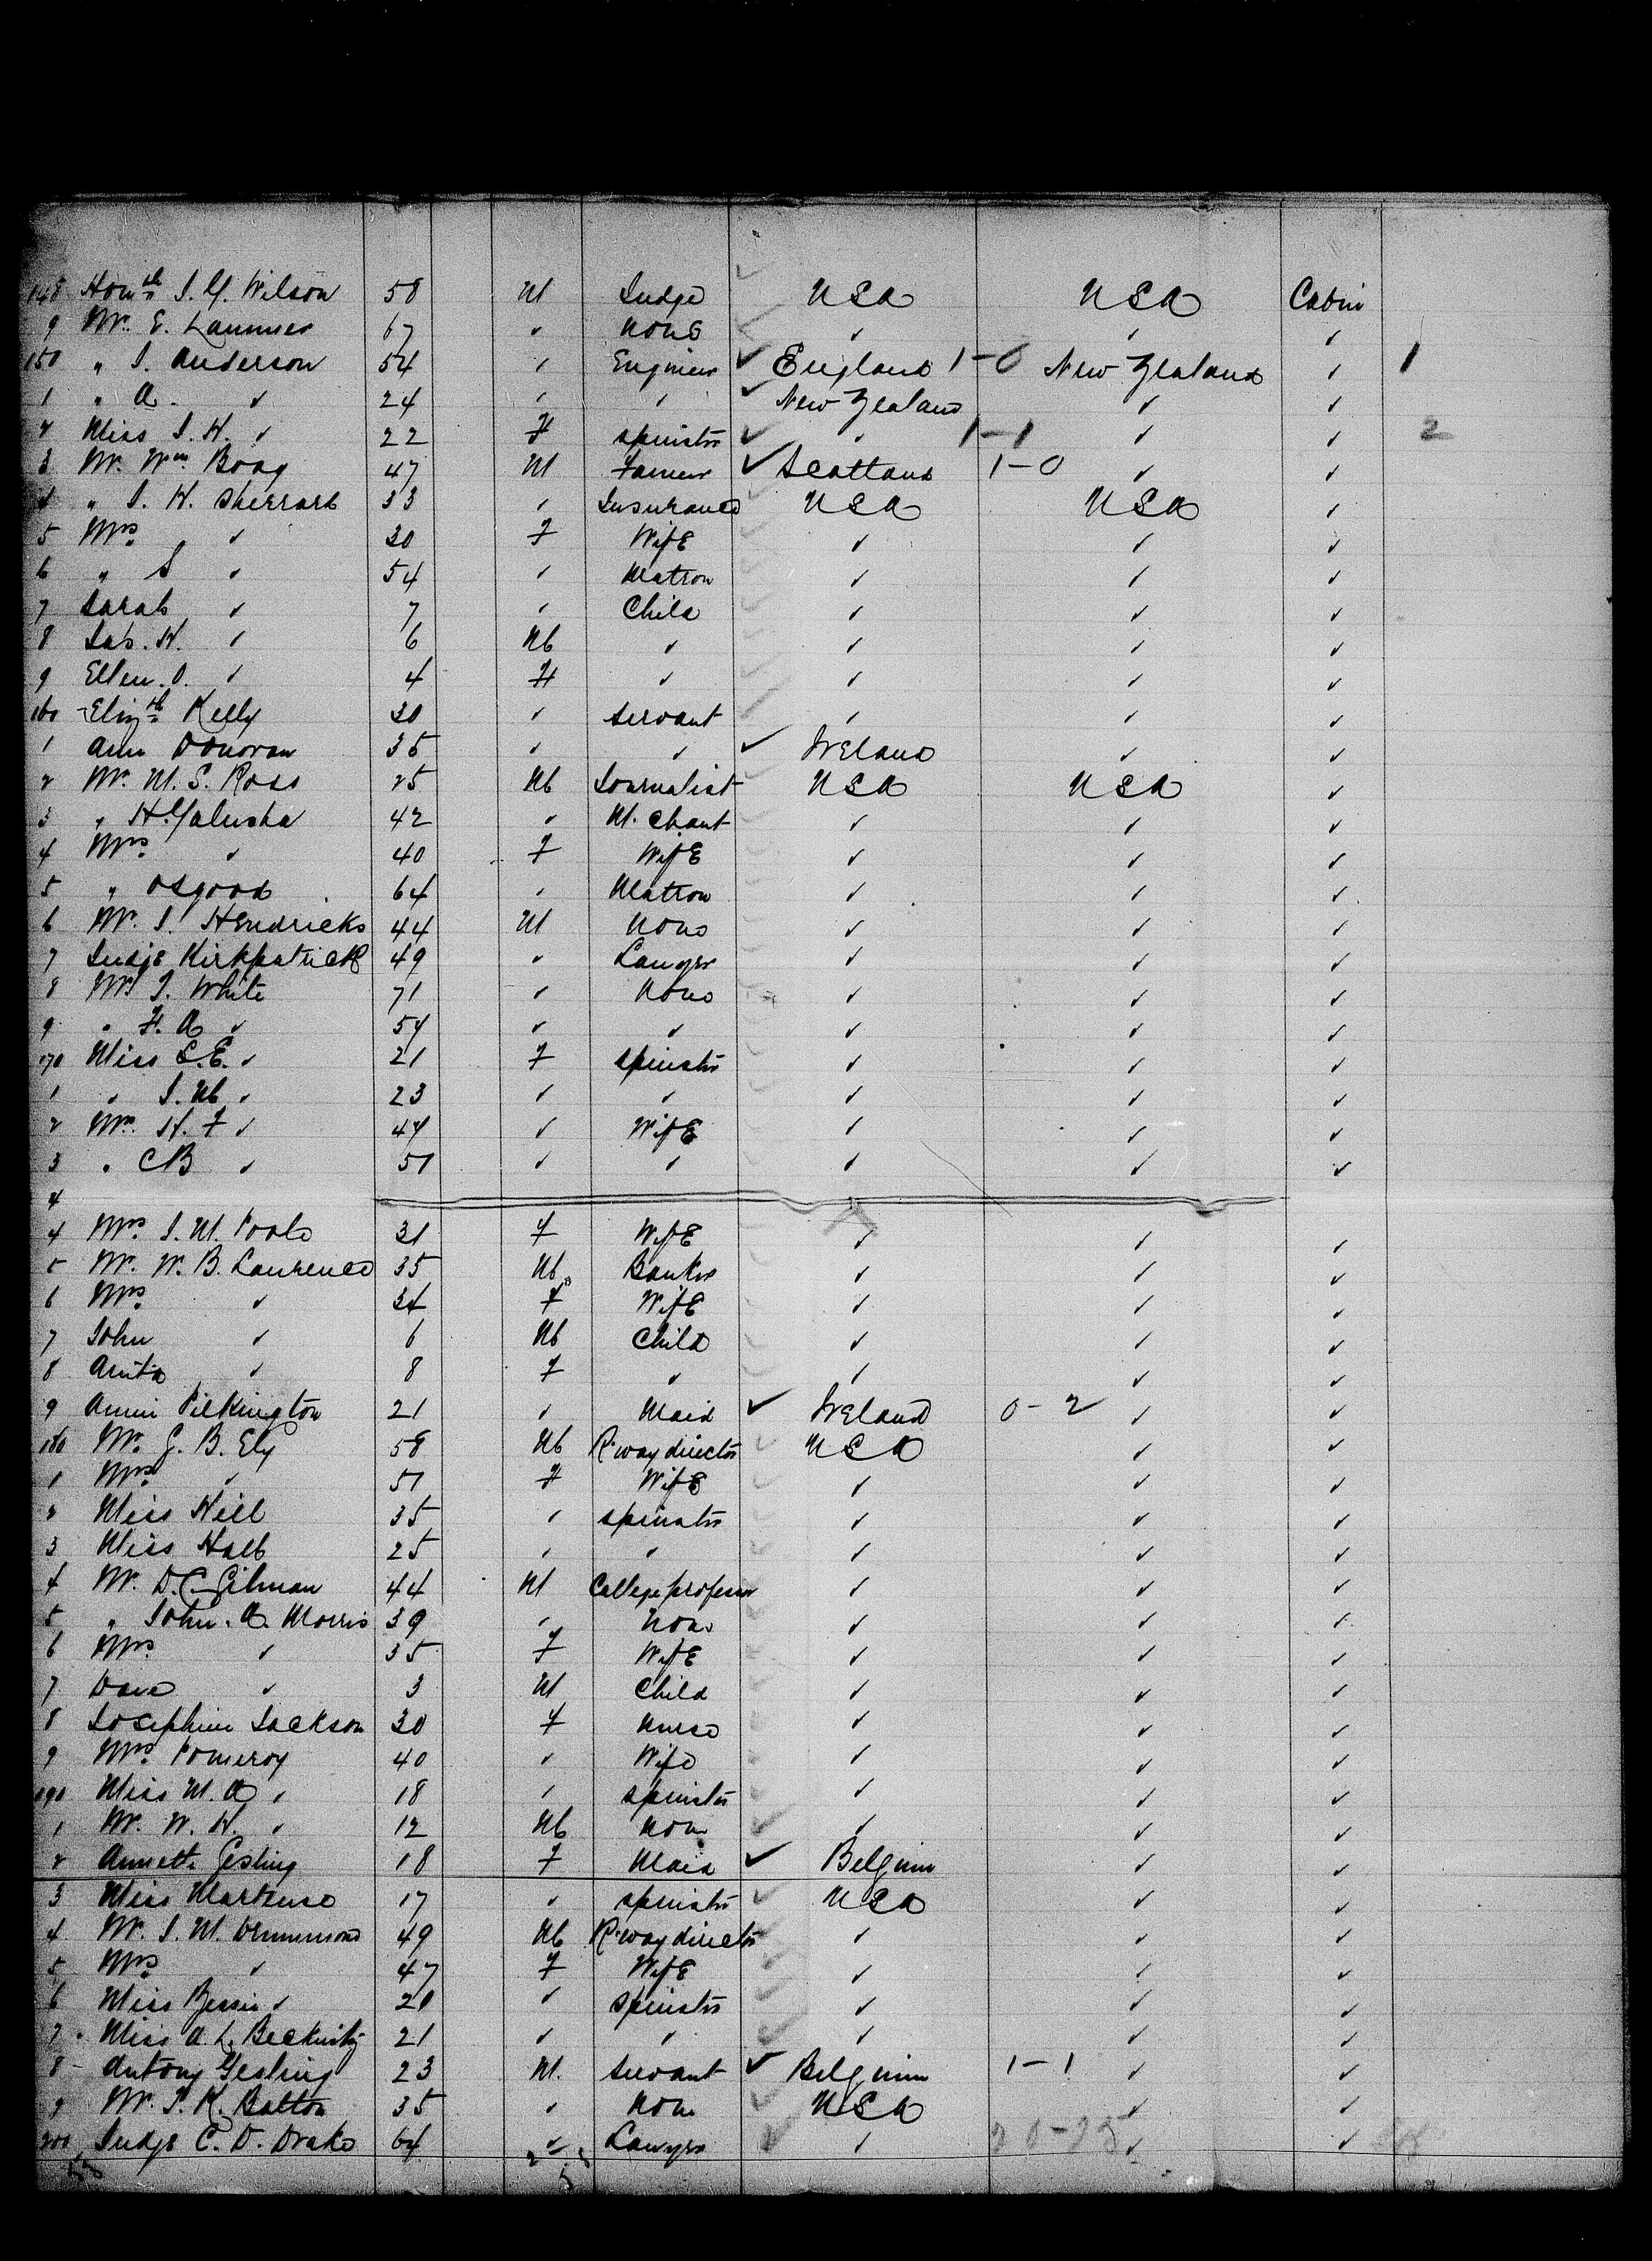 148 Hon'ble J. Y. Wilson 58 M Judge USA USA Cabin
9 Mr. E. Lammer 67 " None " " "
150 " J. Anderson 54 " Engineer England 1-0 New Zealand " 1
1 " A. " 24 " " New Zealand " "
2 Miss J. H. " 22 F Spinster " 1-1 " " 2
3 Mr. Wm Boag 47 M Farmer Scotland 1-0 " "
4 " J. H. Sherrard 33 " Insurance USA USA "
5 Mrs " 30 F Wife " " "
6 " S " 54 " Matron " " "
7 Sarah " 7 " Child " " "
8 Jas. H. " 6 M " " " "
9 Ellen. O. " 4 F " " " "
160 Elizth Kelly 30 " Servant " " "
1 Ann Donovan 35 " " Ireland " "
2 Mr. M. S. Ross 25 M Journalist USA USA "
3 " H. Galusha 42 " M. chant " " "
4 Mrs " 40 F Wife " " "
5 " Osgood 64 " Matron " " "
6 Mr. J. Hendricks 44 M None " " "
7 Judge Kirkpatrick 49 " Lawyer " " "
8 Mr J. White 71 " None " " "
9 " H. A " 54 " " " " "
170 Miss S. E. " 21 F Spinster " " "
1 " J. M " 23 " " " " "
2 Mrs. H. F " 47 " Wife " " "
3 " C B " 51 " " " " "
4
4 Mrs J. M. Poole 31 F Wife " " "
5 Mr. W. B. Laurence 35 M Banker " " "
6 Mrs " 34 F Wife " " "
7 John " 6 M Child " " "
8 Anita " 8 F " " " "
9 Annie Pilkington 21 " Maid Ireland 0-2 " "
180 Mr. G. B. Ely 58 M R'way director USA " "
1 Mrs " 51 F Wife " " "
2 Miss Hill 35 " Spinster " " "
3 Miss Hall 25 " " " " "
4 Mr. D. C. Gilman 44 M College professor " " "
5 " John. A. Morris 39 " None " " "
6 Mrs " 35 F Wife " " "
7 Dave " 3 M Child " " "
8 Josephine Jackson 30 F Nurse " " "
9 Mrs Pomeroy 40 " Wife " " "
190 Miss M. A " 18 " Spinster " " "
1 Mr. W. H. " 12 M None " " "
2 Annette Gesling 18 F Maid Belgium " "
3 Miss 17 " Spinster USA " "
4 Mr. J. M. Drummond 49 M R'way director " " "
5 Mrs " 47 F Wife " " "
6 Miss Bessie " 20 " Spinster " " "
7 Miss A. L. 21 " " " " "
8 Antony Gesling 23 M. Servant Belgium 1-1 " "
9 Mr. P. K. 35 " None USA " "
200 Judge C. D. Drake 64 " Lawyer " " "